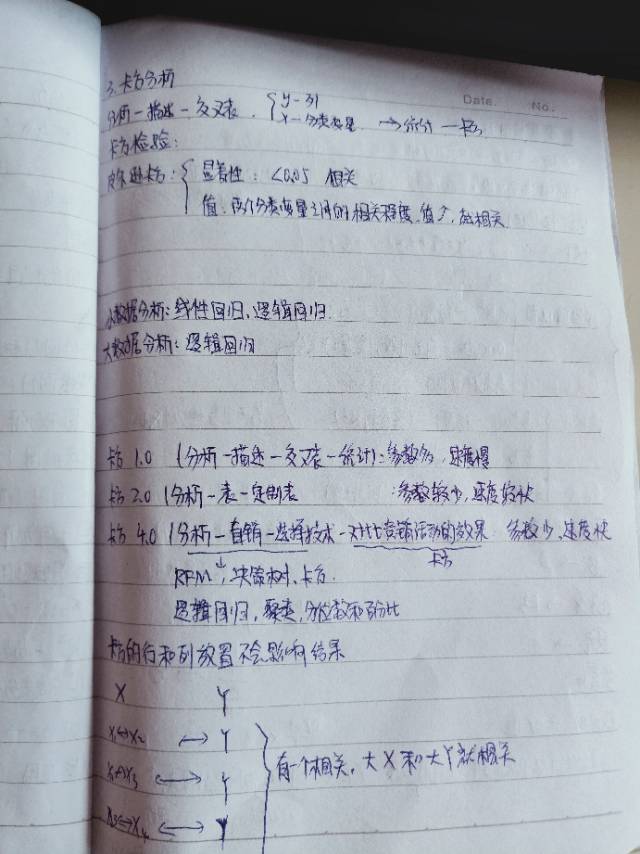 Date. No.
3. 卡方分析
分析-描述-交叉表. { y-列
x-分类变量 → 统计-卡方
卡方检验:
皮尔逊卡方: { 显著性: <0.05 相关
值: 两个分类变量之间的相关程度, 值↑, 越相关
小数据分析: 线性回归, 逻辑回归.
大数据分析: 逻辑回归
卡方 1.0 (分析-描述-交叉表-统计): 参数多, 速度慢
卡方 2.0 (分析-表-定制表 : 参数较少, 速度较快
卡方 4.0 (分析-直销-选择技术-对比营销活动的效果 参数少, 速度快
卡方
RFM, 决策树, 卡方.
逻辑回归, 聚类, 分位数和百分比
卡方的行和列放置不会影响结果
X Y
X₁↔X₂ ↔ Y
X₁↔X₃ ↔ Y
X₃↔X₄ ↔ Y
有一个相关, 大X和大Y就相关